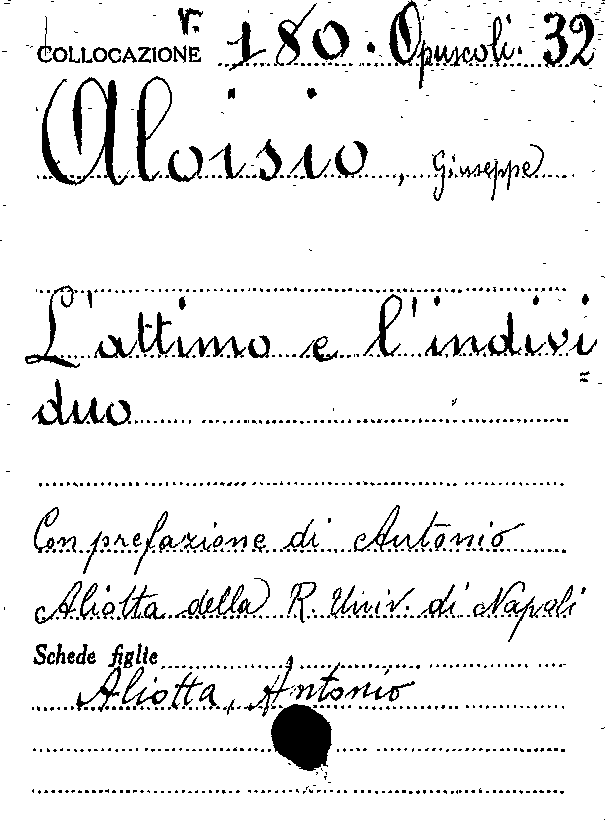 COLLOCAZIONE V. 180. Opuscoli. 32
Aloisio, Giuseppe
L'attimo e l'indivi=
duo
Con prefazione di Antonio
Aliotta della R. Univ. di Napoli
Schede figlie
Aliotta, Antonio